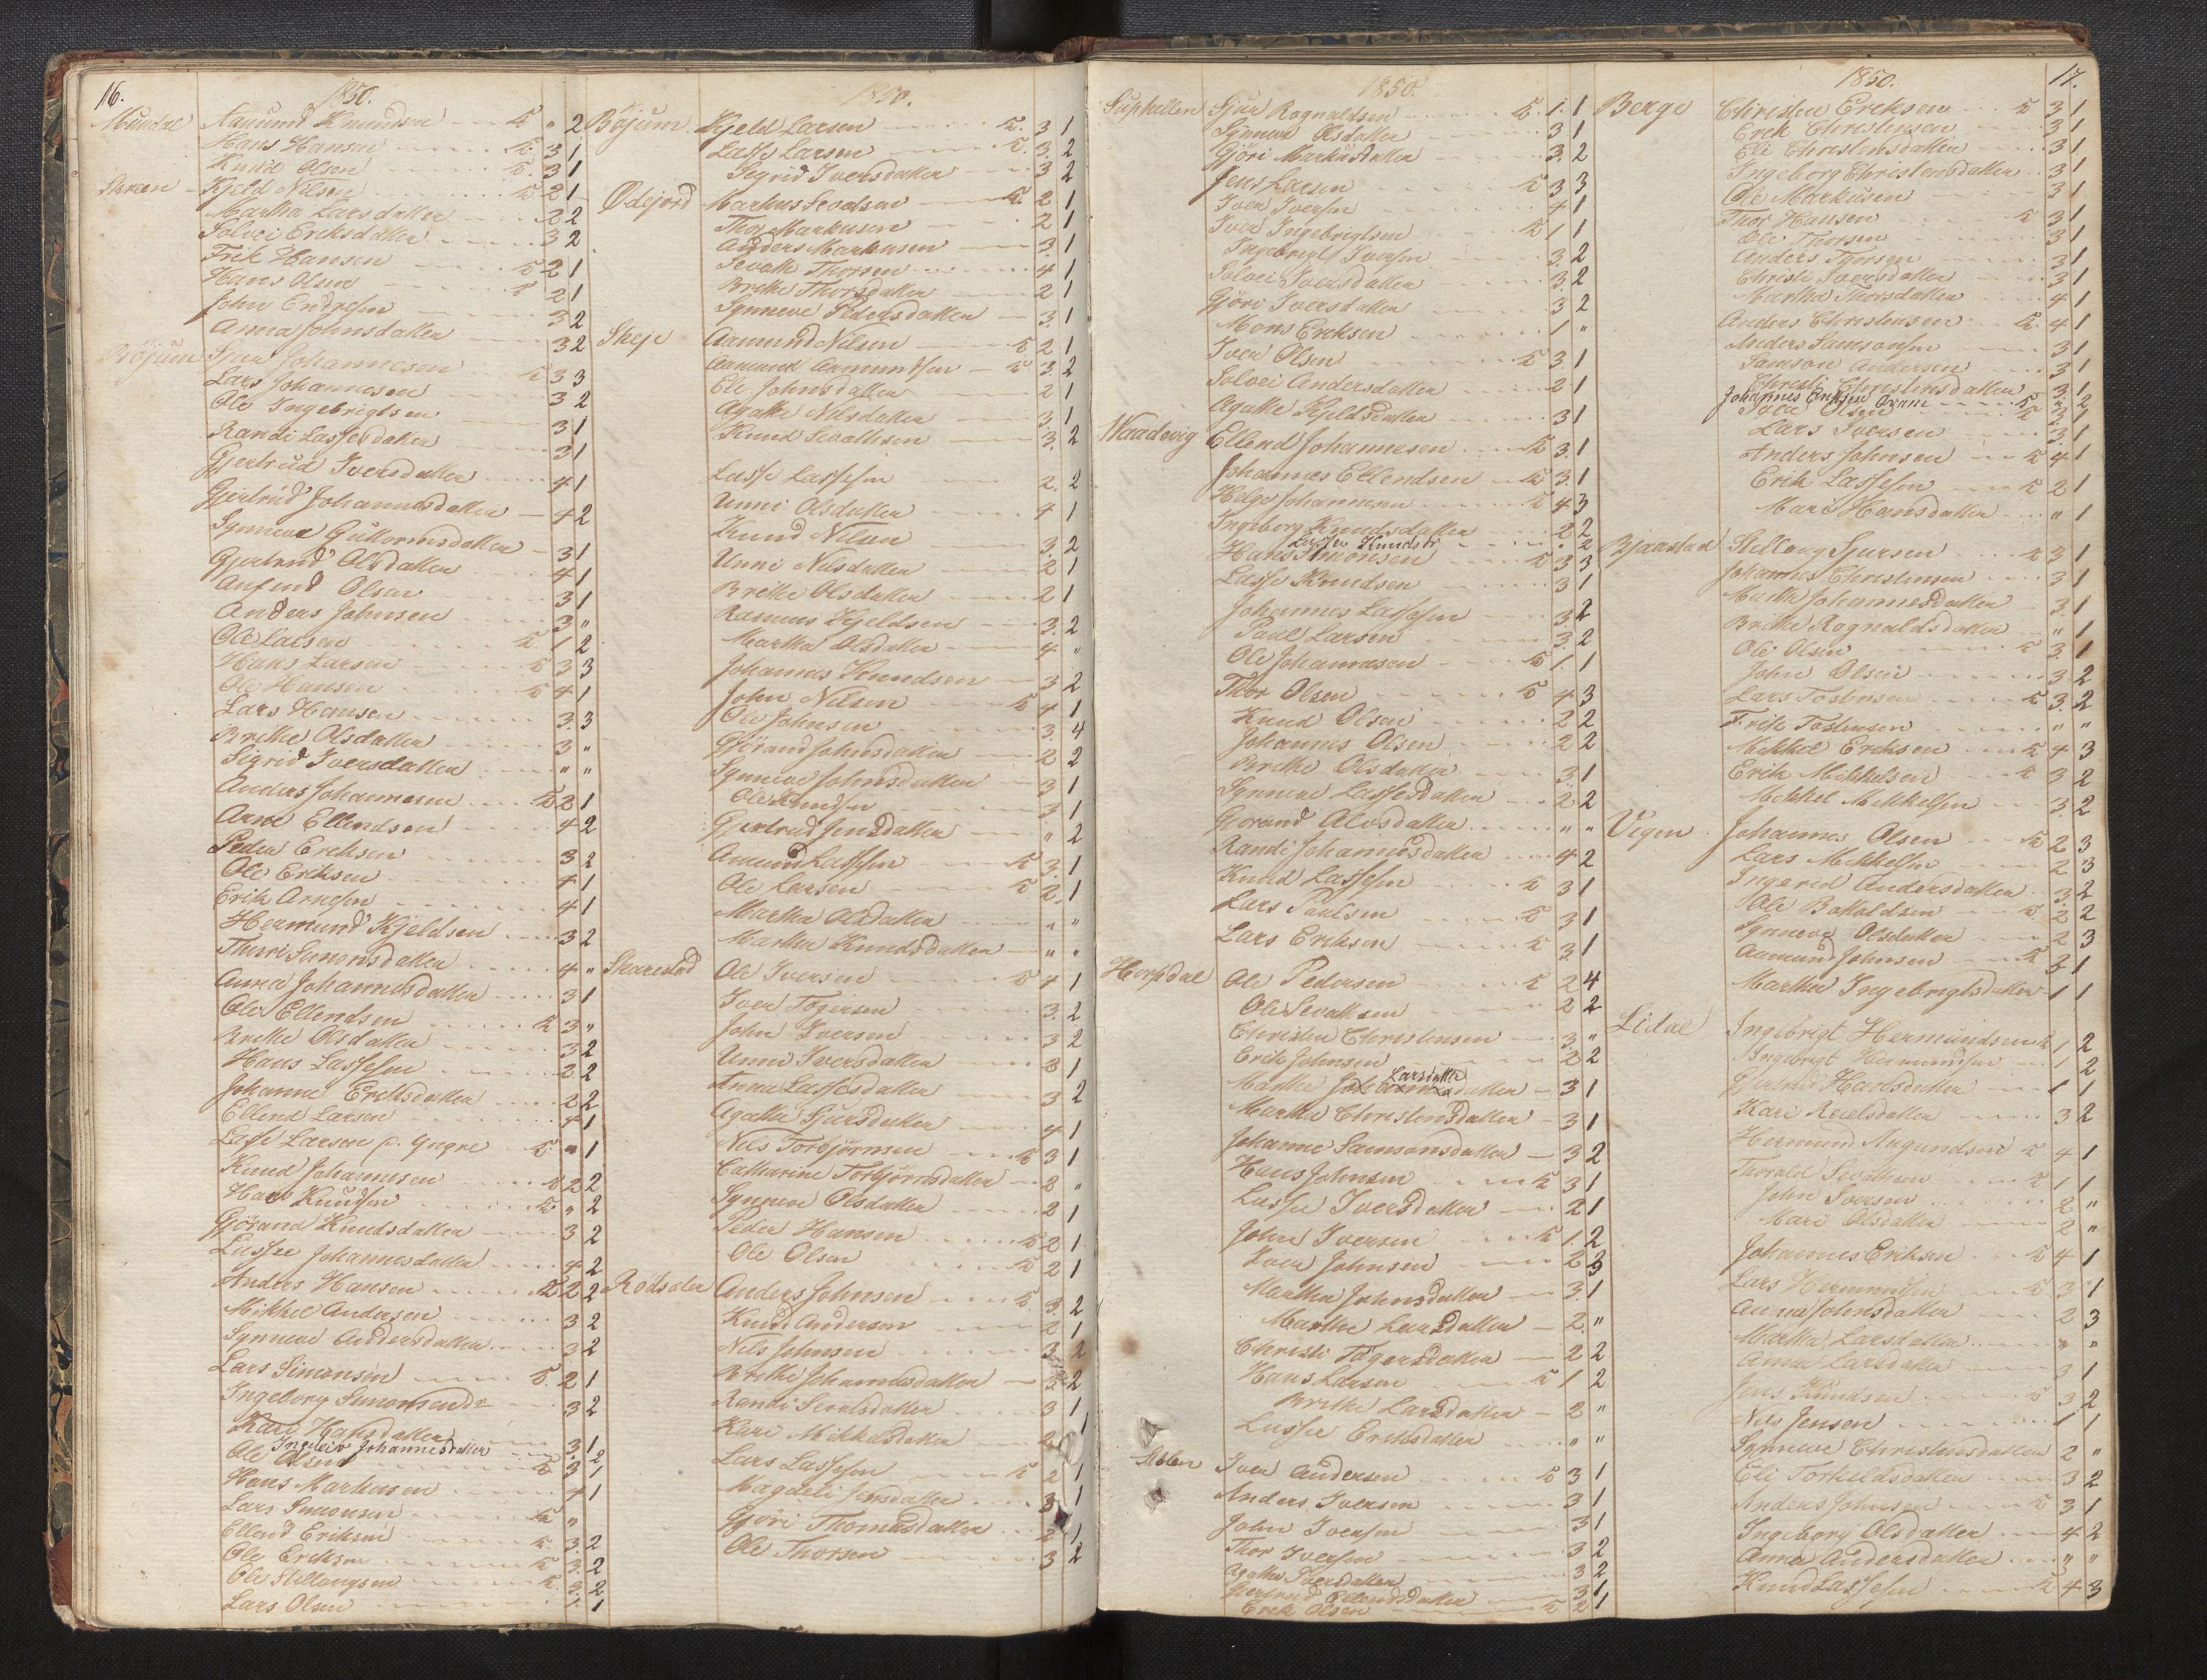 16.
1850.
Mundal Aamund Knudsen — k " 2
Hans Hansen k. 3 1
Knud Olsen k. 3 1
Skreen Kjeld Nilsen k 2 1
Martha Larsdatter 2 2
Solvei Eriksdatter 3 2
Erik Hansen k 2 1
Hans Olsen k 2 1
John Endresen 3 2
Anna Johnsdatter 3 2
Böjum Sjur Johannesen k 3 3
Lars Johannesen 3 2
Ole Ingebrigtsen 3 1
Randi Lassesdatter 3 1
Gjertrud Iversdatter 4 1
Gjertrud Johannesdatter 4 2
Synneve Guttormsdatter 3 1
Gjertrud Olsdatter 4 1
Anfind Olsen 3 1
Anders Johnsen 3 "
Ole Larsen k. 1 2
Hans Larsen k 3 3
Ole Hansen k 4 1
Lars Hansen 3. 3
Brithe Olsdatter 3 "
Sigrid Iversdatter " "
Anders Johannesen k 2 1
Arne Ellendsen 4 2
Peder Eriksen 3 2
Ole Eriksen 4 1
Erik Arnesen 4 1
Hermund Kjeldsen 3 2
Thurri Simonsdatter 4 "
Anna Johannesdatter 3 1
Ole Ellendsen k 3 "
Brithe Olsdatter 3 2
Hans Lassesen 2 2
Johanne Eriksdatter 2 2
Ellend Larsen 4 1
Lasse Larsen p. Yngre k " 1
Knud Johannesen k 2 2
Hans Knudsen k " 2
Gjörand Knudsdatter 3 2
Lussie Johannesdatter 4 2
Anders Hansen k 2 2
Mikkel Andersen 3 2
Synneve Andersdatter 3 2
Lars Simonsen k. 2 1
Ingeborg Simonsendr 3 2
Kari Hansdatter 3 1
Ingeleiv Johannesdatter 2
Ole Olsen k 3 1
Hans Markusen 4 1
Lars Simonsen k "
Ellend Eriksen k. 3. 2
Ole Eriksen k 3. 2
Ole Stellaugsen k. 3. 2
Lars Olsen 1. 1
1850.
Böjum Kjeld Larsen k. 3 1
Lasse Larsen k. 3. 2
Sigrid Iversdatter 3 2
Ødejord Markus Sevalsen k. 2 1
Thor Markusen 2 1
Anders Markusen 3. 1
Sevath Thorsen 4 1
Brithe Thorsdatter 2 1
Synneve Pedersdatter 3. 1
Skeje Aamund Nilsen k 2 1
Aamund Aamundsen k 3. 2
Eli Johnsdatter 2 1
Agathe Nilsdatter 3. 1
Knud Sevathsen 3. 2
Lasse Lassesen 2. 2
Unni Olsdatter 4 1
Knud Nilsen 3. 2
Unni Nilsdatter 2 1
Brithe Olsdatter 2 1
Rasmus Kjeldsen 3. 2
Martha Olsdatter 4 "
Johannes Knudsen 3 2
John Nilsen k 4 1
Ole Johnsen 3. 4
Gjörand Johnsdatter 2 2
Synneve Johnsdatter 3 1
Ole Knudsen 3 1
Gjertrud Jensdatter " 2
Amund Lassesen k 3. 1
Ole Larsen k 2. 1
Martha Olsdatter " "
Martha Knudsdatter " "
Skarestad Ole Iversen k 4 1
Iver Tögersen 3. 2
John Iversen 3 2
Unni Iversdatter 3 1
Anna Lassesdatter 3 2
Agathe Sjursdatter 4 1
Nils Torbjörnsen k 3 1
Catharine Torbjörnsdatter 2 "
Synneve Olsdatter 2 1
Peder Hansen k 2 1
Ole Olsen k 2 1
Rödseter Anders Johnsen k 3. 2
Knud Andersen 2 1
Nils Johnsen 3 2
Brithe Johannesdatter 3. 2
Randi Sevalsdatter 3 1
Kari Mikkelsdatter 2 1
Lars Lassesen k 2 1
Magdeli Jensdatter 3 1
Gjöri Thomasdatter 2 1
Ole Thorsen 3 2
1850.
Suphellen Sjur Rognaldsen k. 1. 1
Synneve Olsdatter 3 1
Gjöri Markusdatter 3. 2
Jens Larsen k 3 3
Iver Iversen 4 1
Iver Ingebrigtsen k 1 1
Ingebrigt Iversen 3. 2
Solvei Iversdatter 3. 2
Gjöri Iversdatter 3 2
Mons Eriksen 1 "
Iver Olsen k 3. 1
Solvei Andersdatter 2 1
Agathe Kjeldsdatter 3 1
Waadvig Ellend Johannesen k 3. 1
Johannes Ellendsen k 3. 1
Helge Johannesen k 4 3
Ingeborg Knudsdatter 2 2
Lussie Knudsdr 2
Hans Simonsen k 3 3
Lasse Knudsen 3 1
Johannes Lassesen 3 2
Paul Larsen 3. 2
Ole Johannesen k 1. 1
Thor Olsen k 4 3
Knud Olsen 2 2
Johannes Olsen 2 2
Brithe Olsdatter 3. 1
Synneve Lassesdatter 2 2
Gjorand Olsdatter " "
Randi Johannesdatter 4 2
Knud Lassesen k 3 1
Lars Paulsen k 3 1
Lars Eriksen k 3. 1
Horpedal Ole Pedersen k 2 4
Ole Sevathsen 2 2
Christen Christensen 3. "
Erik Johnsen 2 2
Larsdatter
Martha Johannesdatter 3 1
Martha Christensdatter 3 1
Johanne Samsonsdatter 3 2
Hans Johnsen k 3 1
Lussie Iversdatter 2 1
John Iversen k 1. 2
Iver Johnsen 2 3
Martha Johnsdatter 3. 1
Martha Larsdatter 2. "
Christi Tögersdatter 2 2
Hans Larsen k 1 2
Brithe Larsdatter 2 "
Lussie Eriksdatter " "
Iver Andersen k 3 1
Anders Iversen 3 1
John Iversen 3 1
Thor Iversen 3 2
Agathe Iversdatter 3 2
Gjertrud Ellendsdatter 3 1
Erik Olsen k 2 1
1850.
17.
Berge Christen Eriksen k 3 1
Erik Christensen 3 1
Eli Christensdatter 3 1
Ingeborg Christensdatter 3 1
Ole Markusen 3 1
Thor Hansen k 3 1
Ole Thorsen 3 1
Anders Thorsen 3 1
Christi Iversdatter 3 1
Martha Thorsdatter 4 1
Anders Christensen k. 4 1
Anders Samsonsen 3 1
Samson Andersen 3 1
Christi Christensdatter 3. 1
Johannes Eriksen k 3. 2
Iver Olsen k 3. 1
Lars Iversen 3. 1
Anders Johnsen k 4 1
Erik Lassesen k 2 1
Mari Hansdatter " 1
Bjaastad Stellaug Sjursen k 3 1
Johannes Christensen 3 1
Marthe Johannesdatter 3 1
Brithe Rognaldsdatter " 1
Ole Olsen k 3. 1
John Olsen 3 2
Lars Tostensen k 3. 2
Erik Tostensen " "
Mikkel Eriksen k 4 3
Erik Mikkelsen k 3 2
Mikkel Mikkelsen 3. 2
Vigen Johannes Olsen k 2 3
Lars Mikkelsen 2 3
Ingerid Andersdatter 3. 2
Ole Botholdsen k. 2 2
Synneve Olsdatter 2 3
Aamund Johnsen k 3 1
Martha Ingebrigtsdatter 1 1
Lidal Ingebrigt Hermundsen k 1 2
Ingebrigt Hermundsen 1 2
Gjertrud Haresdatter 1 1
Kari Roelsdatter 3 2
Hermund Augundsen k 4 1
Thorald Sevathsen k 1 1
John Iversen 2 "
Mari Olsdatter 2 "
Johannes Eriksen k 4 1
Lars Hermundsen k 3 1
Anna Johnsdatter 2 3
Martha Larsdatter " "
Anna Larsdatter 3 1
Jens Knudsen k 3. 2
Nils Jensen 1 1
Synneve Christensdatter 2 "
Eli Torkeldsdatter 3 2
Anders Johnsen k 3 1
Ingeborg Olsdatter 4 2
Anna Andersdatter " "
Knud Lassesen k 4 3